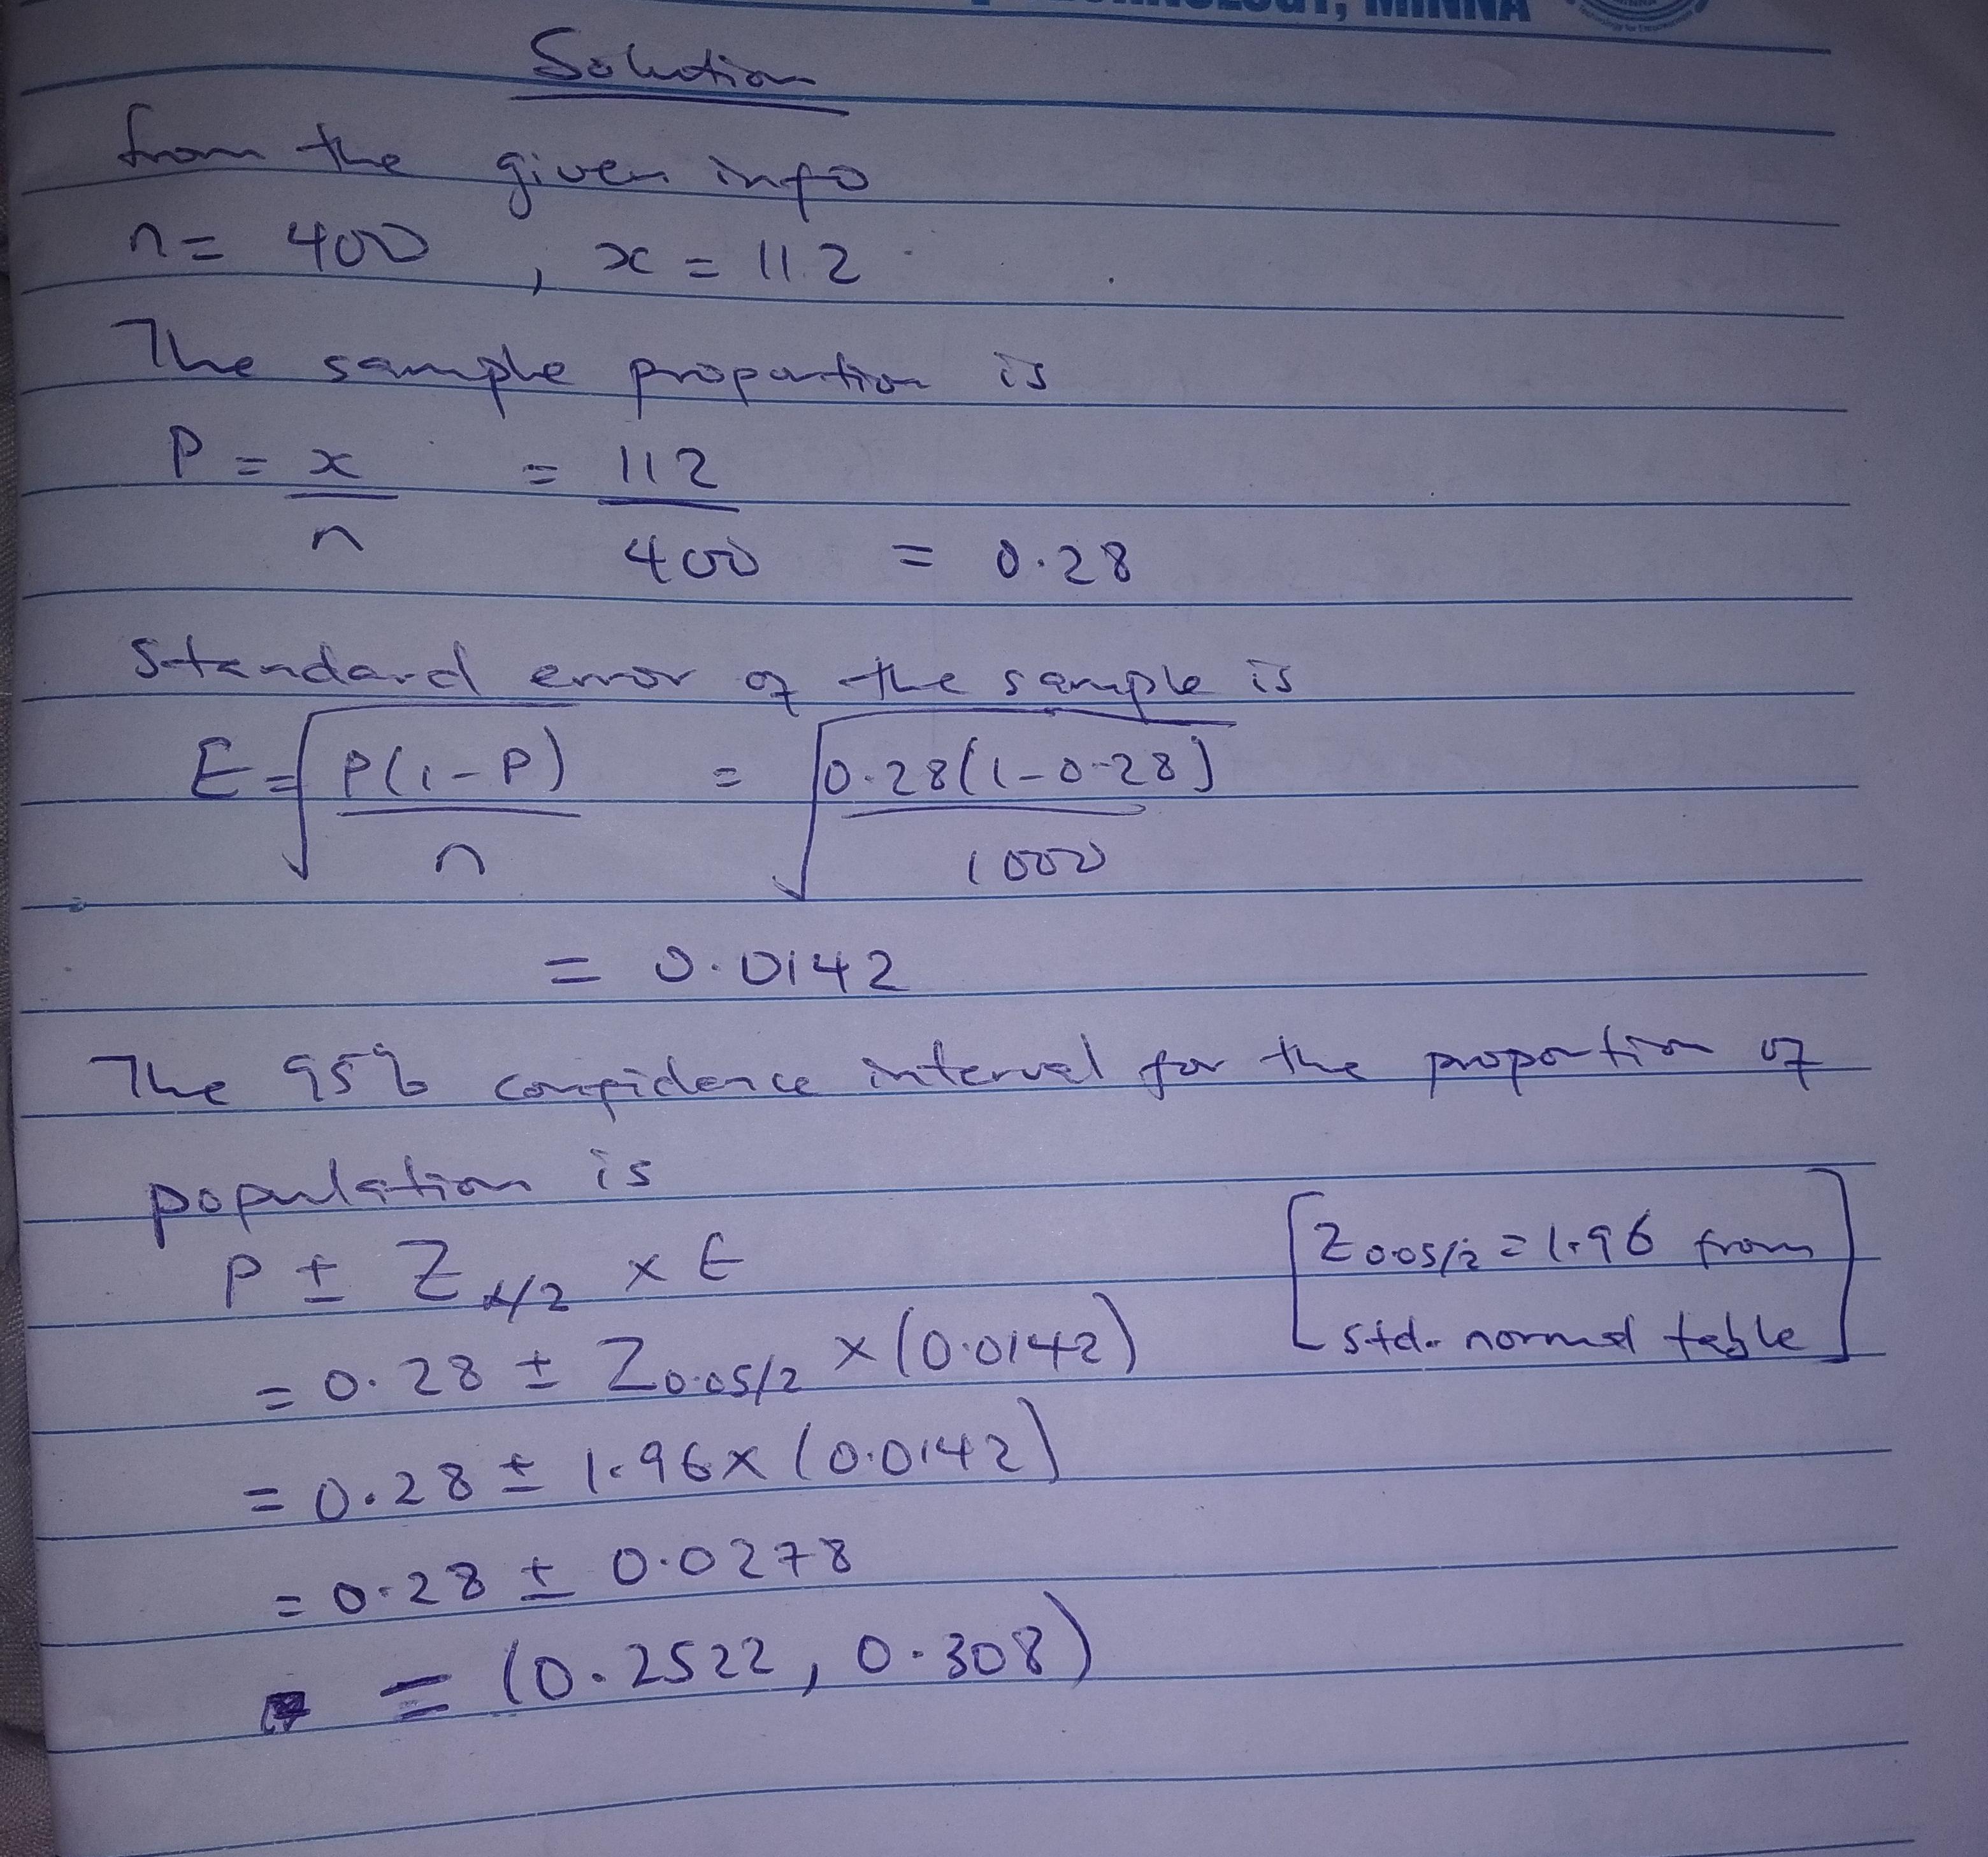 MINNA
Solution
from the given info
n = 400, x = 112
The sample proportion is
P = x/n = 112/400 = 0.28
Standard error of the sample is
E = √(P(1-P)/n) = √(0.28(1-0.28)/1000)
= 0.0142
The 95% confidence interval for the proportion of
population is
P ± Z α/2 × E
[Z 0.05/2 = 1.96 from
std. normal table]
= 0.28 ± Z 0.05/2 × (0.0142)
= 0.28 ± 1.96 × (0.0142)
= 0.28 ± 0.0278
= (0.2522, 0.308)